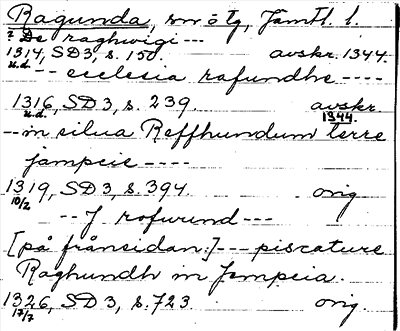 Ragunda, sn ö tg, Jämtl. l.
? De raghwigi ---
1314, SD 3, s. 150. avskr. 1344.
u.d.
-- ecclesia rafundhe ----
1316, SD 3, s. 239. avskr.
u.d. 1344.
-- in silua Reffhundum terre
jampcie ----
1319, SD 3, s. 394. orig.
10/2
-- J rofurund ---
[på frånsidan:] --- piscature
Raghundh in Jempcia.
1326, SD 3, s. 723. orig.
17/7